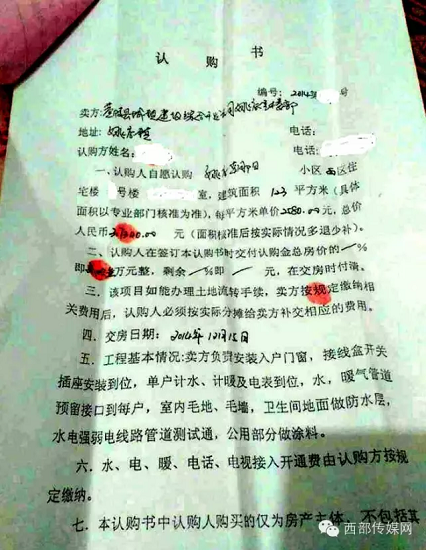 认购书
编号：2014年 号
卖方：
地址： 电话：
认购方姓名： 电话：
一、认购人自愿认购 小区西区住
宅楼 号楼 室，建筑面积 123 平方米（具体
面积以专业部门核准为准），每平方米单价2080.00元，总价
人民币 元（面积核准后按实际情况多退少补）。
二、认购人在签订本认购书时交付认购金总房价的一%
即 万元整，剩余 一%即 一 元，在交房时付清。
三、该项目如能办理土地流转手续，卖方按规定缴纳相
关费用后，认购人必须按实际分摊给卖方补交相应的费用。
四、交房日期：2014年12月15日
五、工程基本情况：卖方负责安装入户门窗，接线盒开关
插座安装到位，单户计水、计暖及电表到位，水，暖气管道
预留接口到每户，室内毛地、毛墙，卫生间地面做防水层，
水电强弱电线路管道测试通，公用部分做涂料。
六、水、电、暖、电话、电视接入开通费由认购方按规
定缴纳。
七、本认购书中认购人购买的仅为房产主体，不包括其
西部传媒网